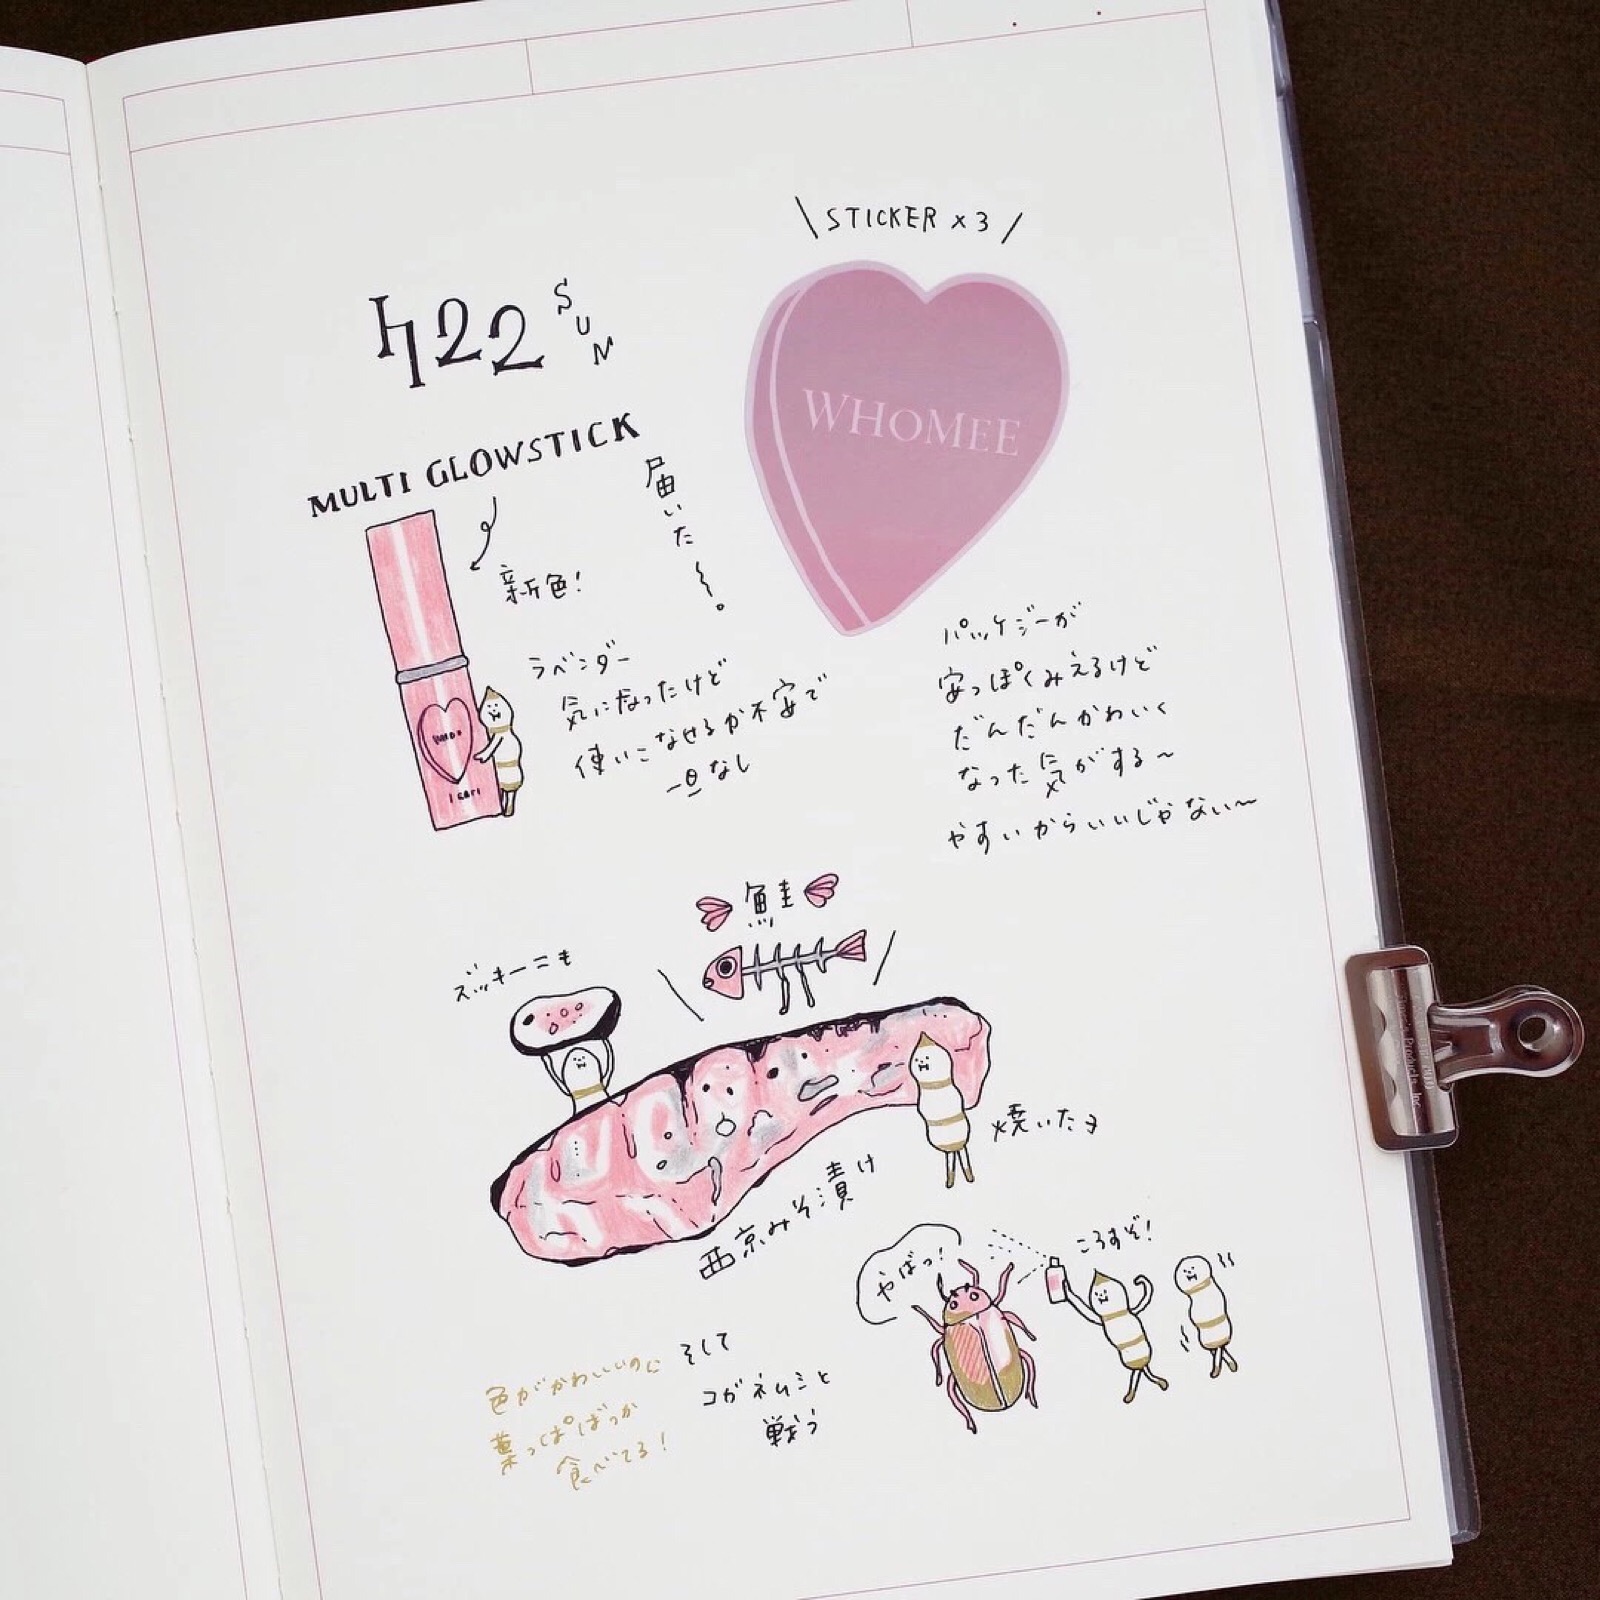 \ STICKER × 3 /
422 SUN
WHOMEE
MULTI GLOWSTICK
届いた〜。
新色!
ラベンダー
気になったけど
使いこなせるか不安で
一旦なし
パッケジーが
安っぽくみえるけど
だんだんかわいく
なった気がする〜
やすいからいいじゃない〜
鮭
ズッキーニも
焼いたよ
西京みそ漬け
やばっ!
ころすぞ!
そして
コガネムシと
戦う
色がかわいいのに
葉っぱばっか
食べてる!